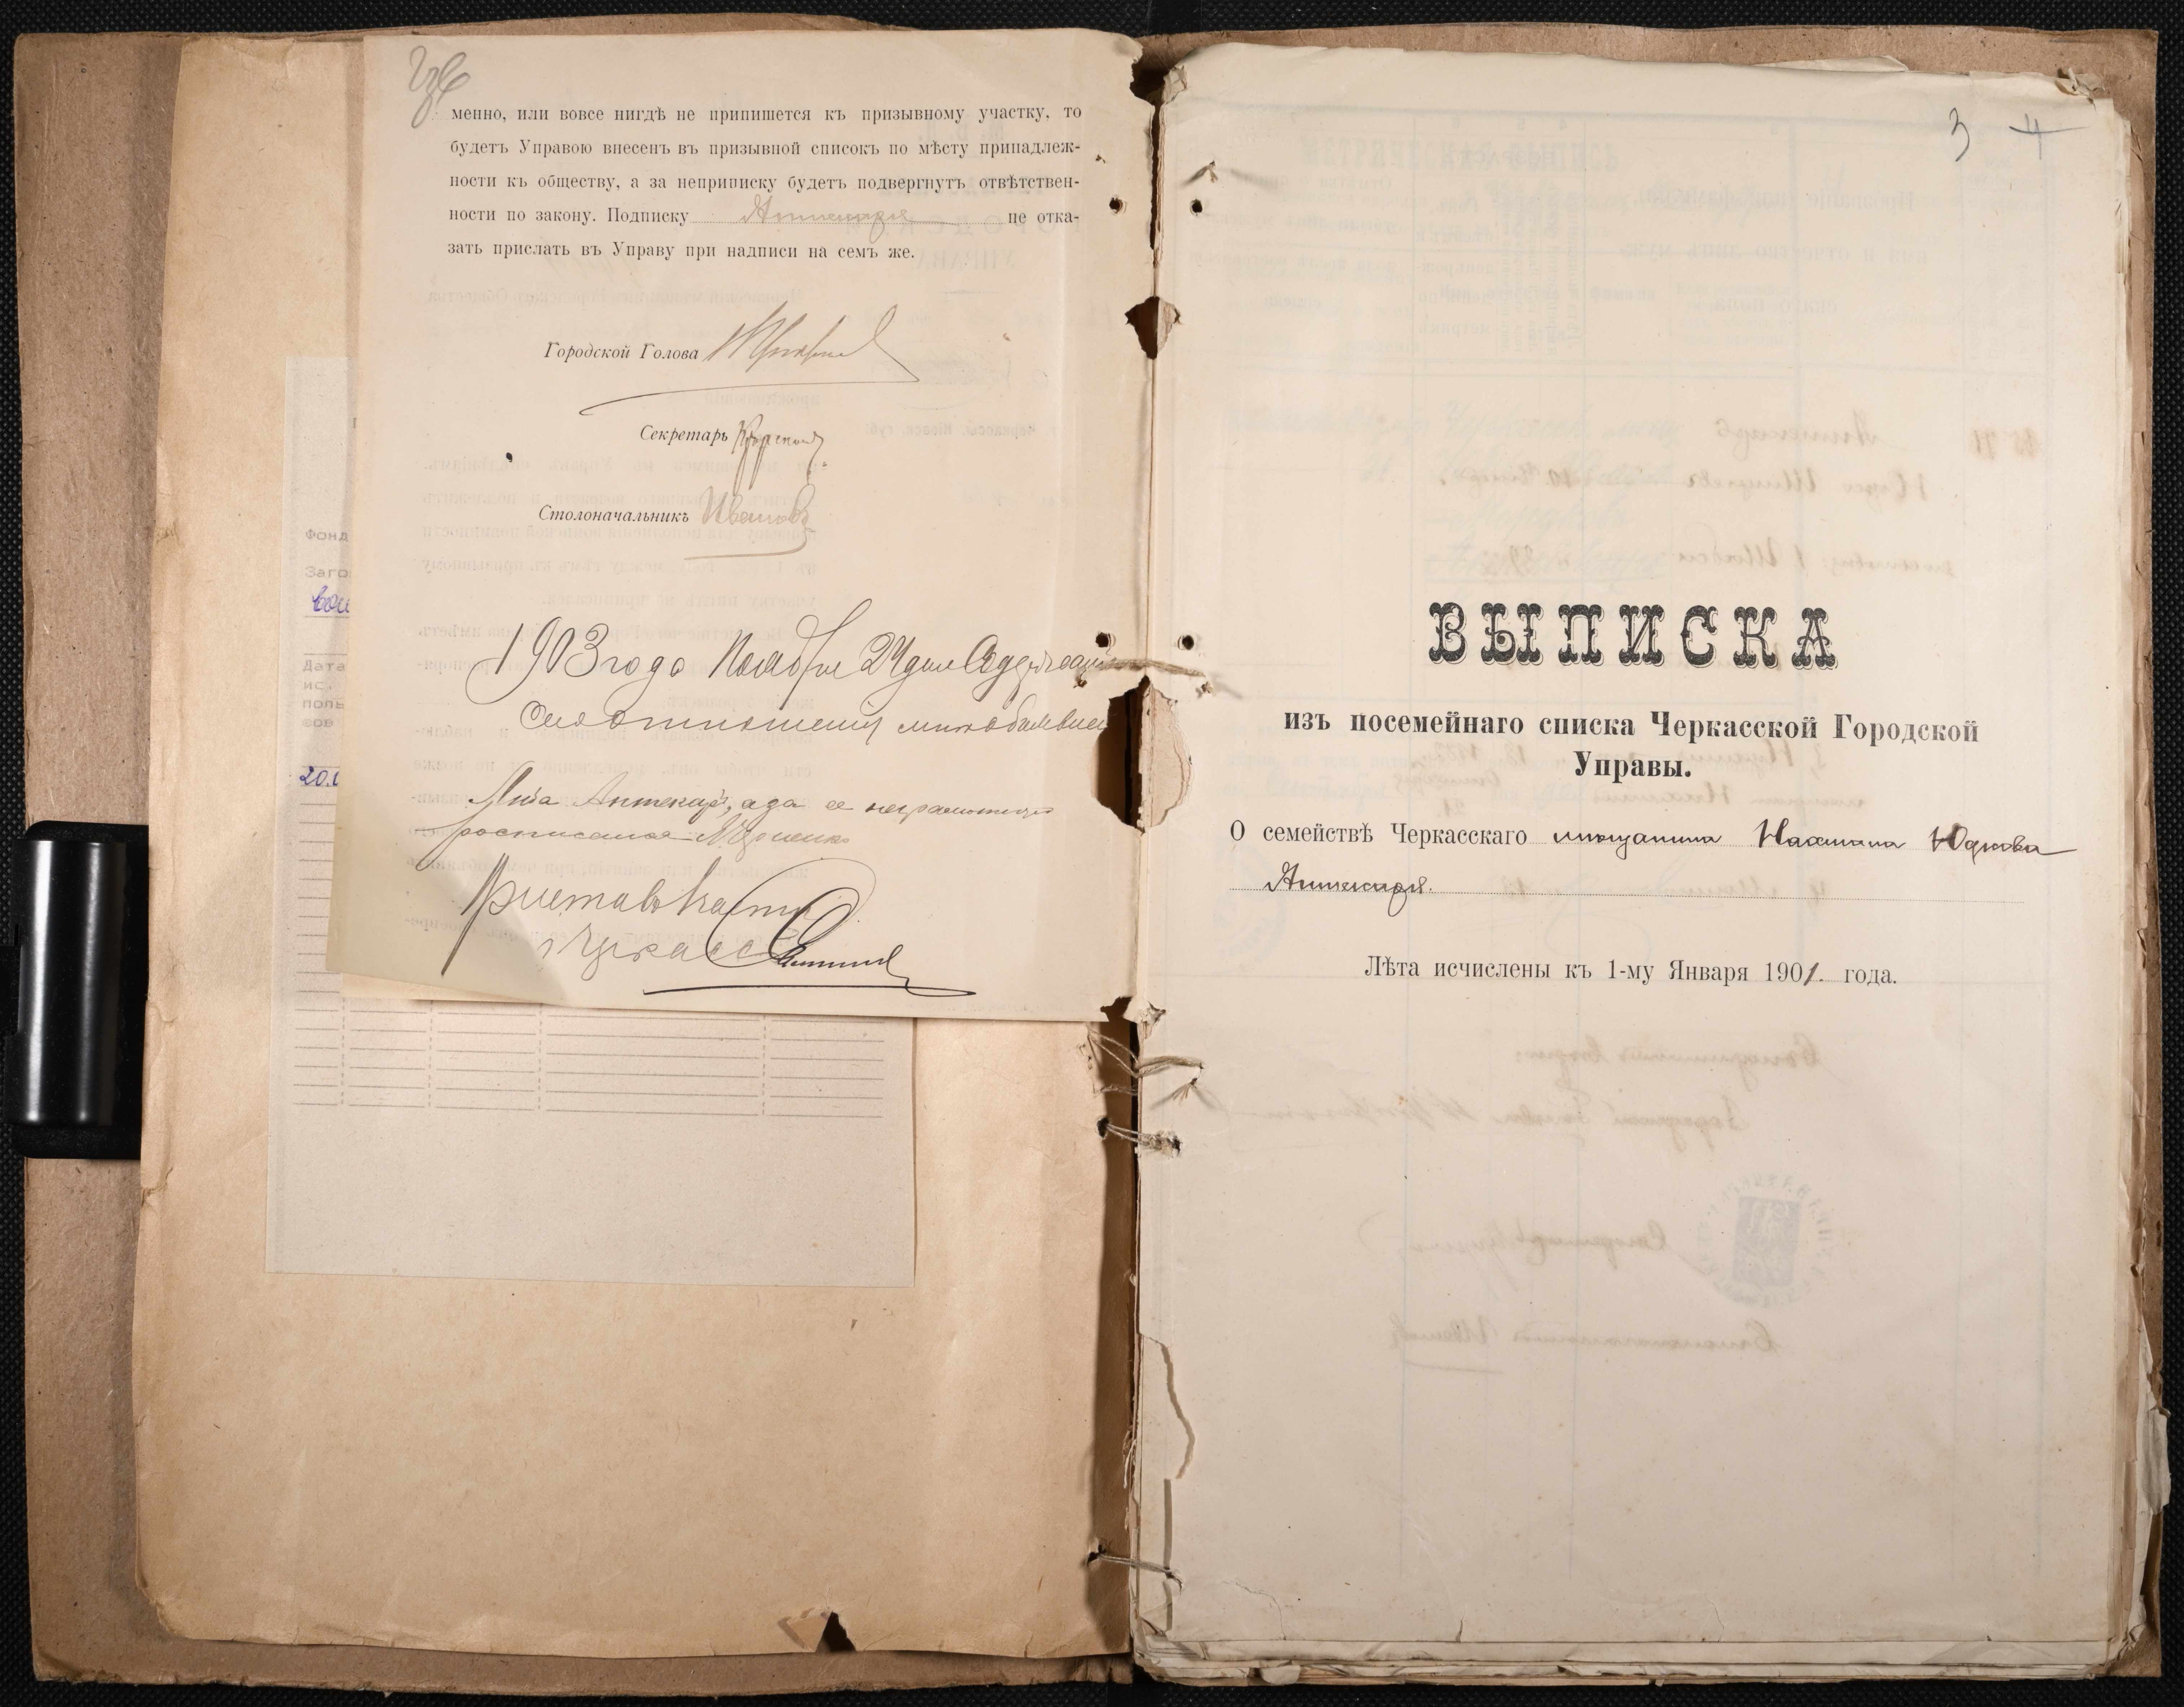 менно, или вовсе нигдѣ не припишется къ призывному участку, то
будетъ Управою внесенъ въ призывной списокъ по мѣсту принадлеж-
ности къ обществу, а за неприписку будетъ подвергнутъ отвѣтствен-
ности по закону. Подписку Аптекаря не отка-
зать прислать въ Управу при надписи на семъ же.
Городской Голова
Секретарь
Столоначальникъ Ивановъ
1903 года Ноября 24 дня Содержаніе
сего отношенія мнѣ объявлено
Аптекарь, а за ее неграмотную
росписался
Приставъ
г. Черкассъ
Фонд
Заго
Дата
ис.
поль
зов
20.0
3 4
ВЫПИСКА
изъ посемейнаго списка Черкасской Городской
Управы.
О семействѣ Черкасскаго мѣщанина Нахмана Юдкова
Аптекаря.
Лѣта исчислены къ 1-му Января 1901. года.